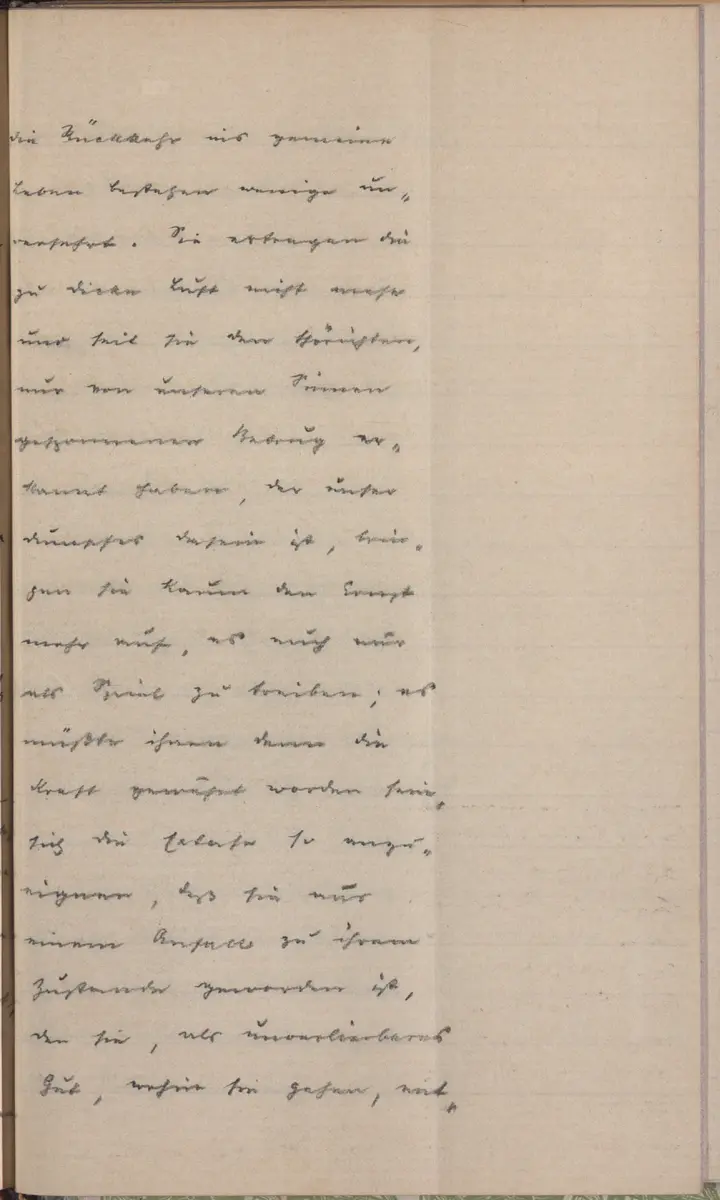 die Rückkehr ins gemeine
Leben bestehen wenige un„
versehrt. Sie ertragen die
zu dicke Luft nicht mehr
und seit sie den thörichten,
nur von unseren Sinnen
gesponnenen Betrug er„
kannt haben, der unser
dumpfes Dasein ist, brin„
gen sie kaum den Ernst
mehr auf, es auch nur
als Spiel zu treiben; es
müßte ihnen denn die
Kraft gewährt worden sein,
sich die Extase so anzu„
eignen, daß sie aus
einem Anfall zu ihrem
Zustande geworden ist,
den sie, als unverlierbares
Gut, wohin sie gehen, mit„